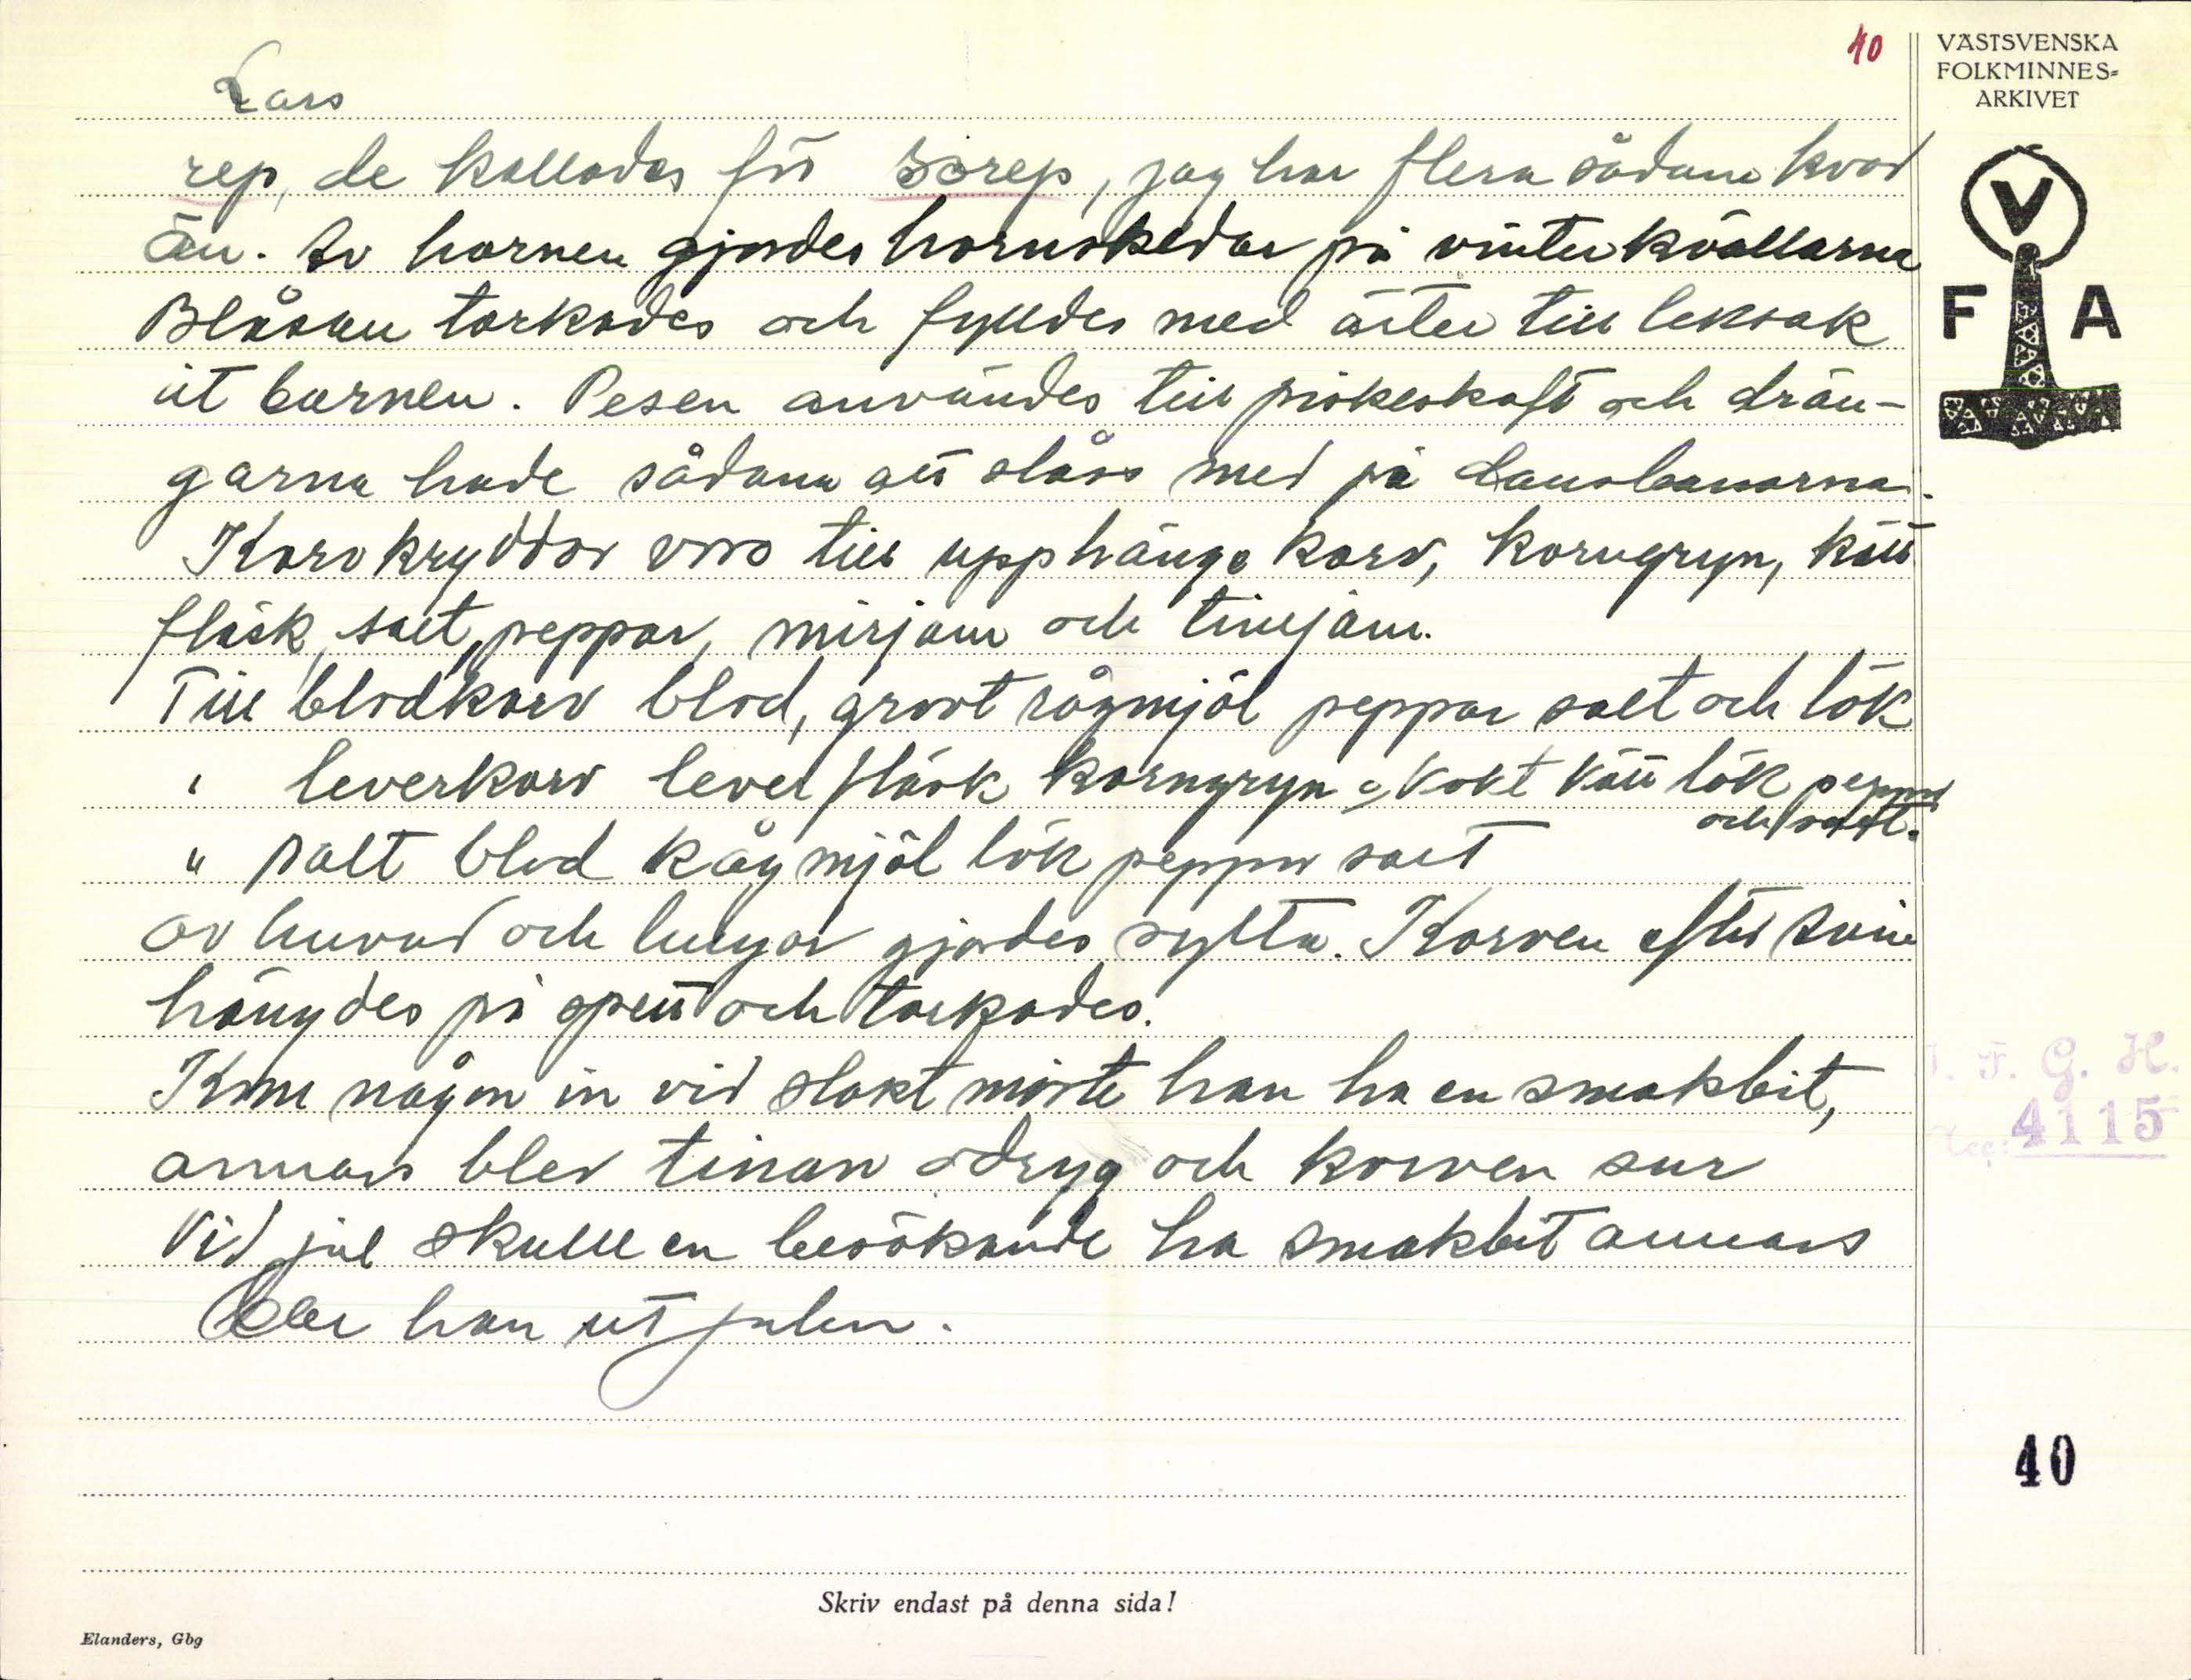 40
VÄSTSVENSKA
FOLKMINNES-
ARKIVET
Lars
rep, de kallades för sörep, jag har flera sådana kvar
än. Av hornen gjordes hornskedar på vinterkvällarna
Blåsan torkades och fylldes med ärter till leksak
åt barnen. Pesen användes till piskeskaft och drän-
garna hade sådana att slåss med på dansbanorna.
Korvkryddor voro till upphänge korv, korngryn, kött
fläsk, salt, peppar, mirjam och timjam.
Till blodkorv blod, grovt rågmjöl peppar salt och lök
" leverkorv lever fläsk korngryn o, kokt kött lök peppar
och salt.
" palt blod rågmjöl lök peppar salt
av huvud och lungor gjordes sylta. Korven efter svin
hängdes på spett och torkades.
Kom någon in vid slakt måste han ha en smakbit,
annars blev tinan odryg och korven sur
Vid jul skulle en besökande ha smakbit annars
bar han ut julen.
V
F A
I. F. G. H.
Acc: 4115
40
Skriv endast på denna sida!
Elanders, Gbg